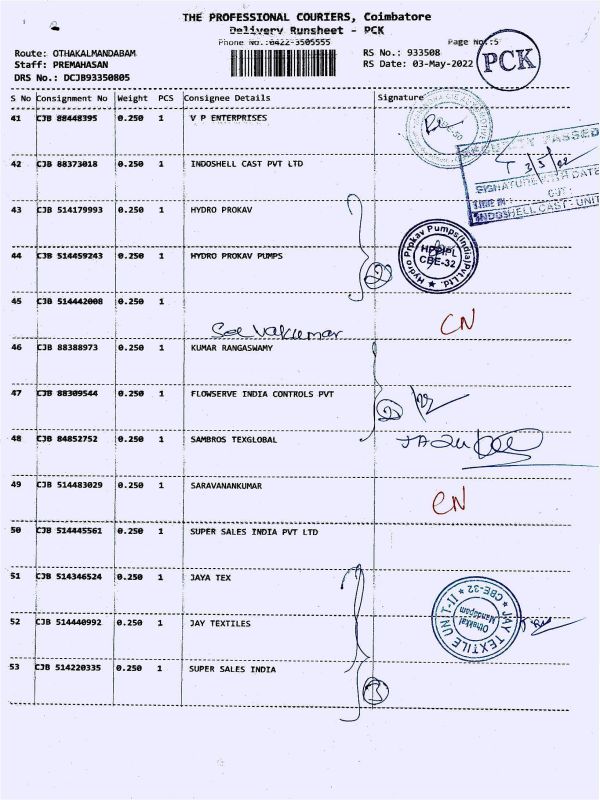 THE PROFESSIONAL COURIERS, Coimbatore
Delivery Runsheet - PCK
Phone No.:0422-3505555
Page No.:5
PCK
Route: OTHAKALMANDABAM
RS No.: 933508
Staff: PREMAHASAN
RS Date: 03-May-2022
DRS No.: DCJB93350805
S No Consignment No Weight PCS Consignee Details Signature
41 CJB 88448395 0.250 1 V P ENTERPRISES
SECURITY PASSED
3/5/22
SIGNATURE WITH DATE
TIME IN : OUT :
INDOSHELL CAST - UNIT
42 CJB 88373018 0.250 1 INDOSHELL CAST PVT LTD
43 CJB 514179993 0.250 1 HYDRO PROKAV
Hydro Prokav Pumps(India)Pvt.Ltd.
HPPIPL
CBE-32
44 CJB 514459243 0.250 1 HYDRO PROKAV PUMPS
2
45 CJB 514442008 0.250 1
Selvakumar
CN
46 CJB 88388973 0.250 1 KUMAR RANGASWAMY
47 CJB 88309544 0.250 1 FLOWSERVE INDIA CONTROLS PVT
2
48 CJB 84852752 0.250 1 SAMBROS TEXGLOBAL
49 CJB 514483029 0.250 1 SARAVANANKUMAR
CN
50 CJB 514445561 0.250 1 SUPER SALES INDIA PVT LTD
51 CJB 514346524 0.250 1 JAYA TEX
52 CJB 514440992 0.250 1 JAY TEXTILES
JAY TEXTILE UNIT-II
CBE-32
Othakkal
Mandapam
53 CJB 514220335 0.250 1 SUPER SALES INDIA
3